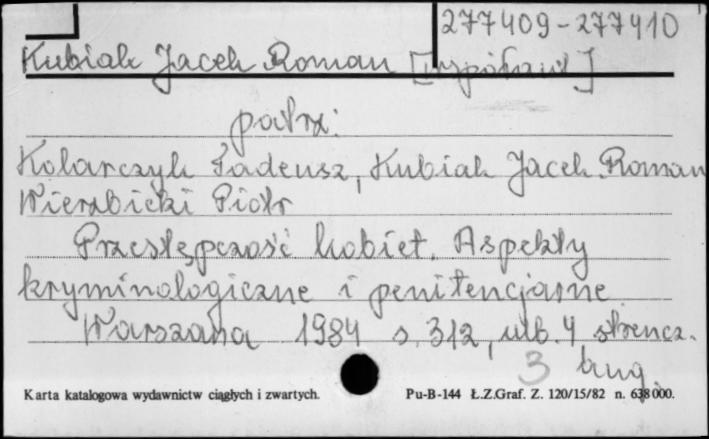 277409-277410
Kubiak Jacek Roman [współaut]
patrz:
Kolarczyk Tadeusz, Kubiak Jacek Roman
Wierzbicki Piotr
Przestępczość kobiet. Aspekty
kryminologiczne i penitencjarne
Warszawa 1984 s. 312, nlb. 4 streszcz.
3 ang.
Karta katalogowa wydawnictw ciągłych i zwartych. Pu-B-144 Ł.Z.Graf. Z. 120/15/82 n. 638 000.